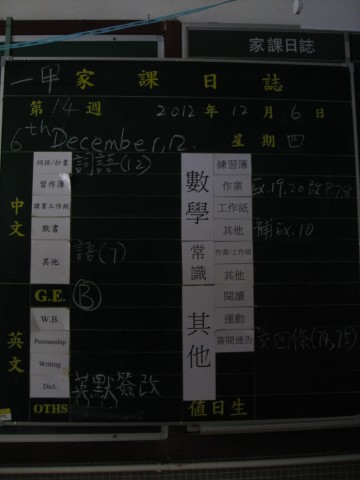 家課日誌
一甲家課日誌
第14週 2012年12月6日
6th December,12. 星期四
中文
詞語/抄書 詞語(12)
習作簿
課業工作紙
默書
其他 語(7)
G.E. B
英文
W.B.
Penmanship
Writing
Dict. 英默簽改
OTHS
數學
練習簿
作業 Ex.19,20 改P.7,8
工作紙
其他 補Ex.10
常識
作業/工作紙
其他
其他
閱讀
運動
簽閱通告 交回條(74,75)
值日生